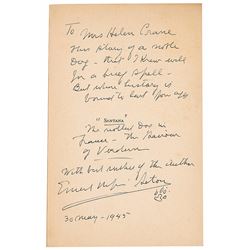 To Mrs Helen Crane
this story of a noble
Dog - that I knew well
for a brief spell -
But whose history is
bound to last for
"SANTANA"
"The noblest Dog in
France - the Saviour
of Verdun
With best wishes of the author
Ernest Seton
30 May - 1945